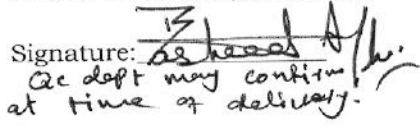 Signature: Rasheed A
Qc dept may confirm
at time of delivery.